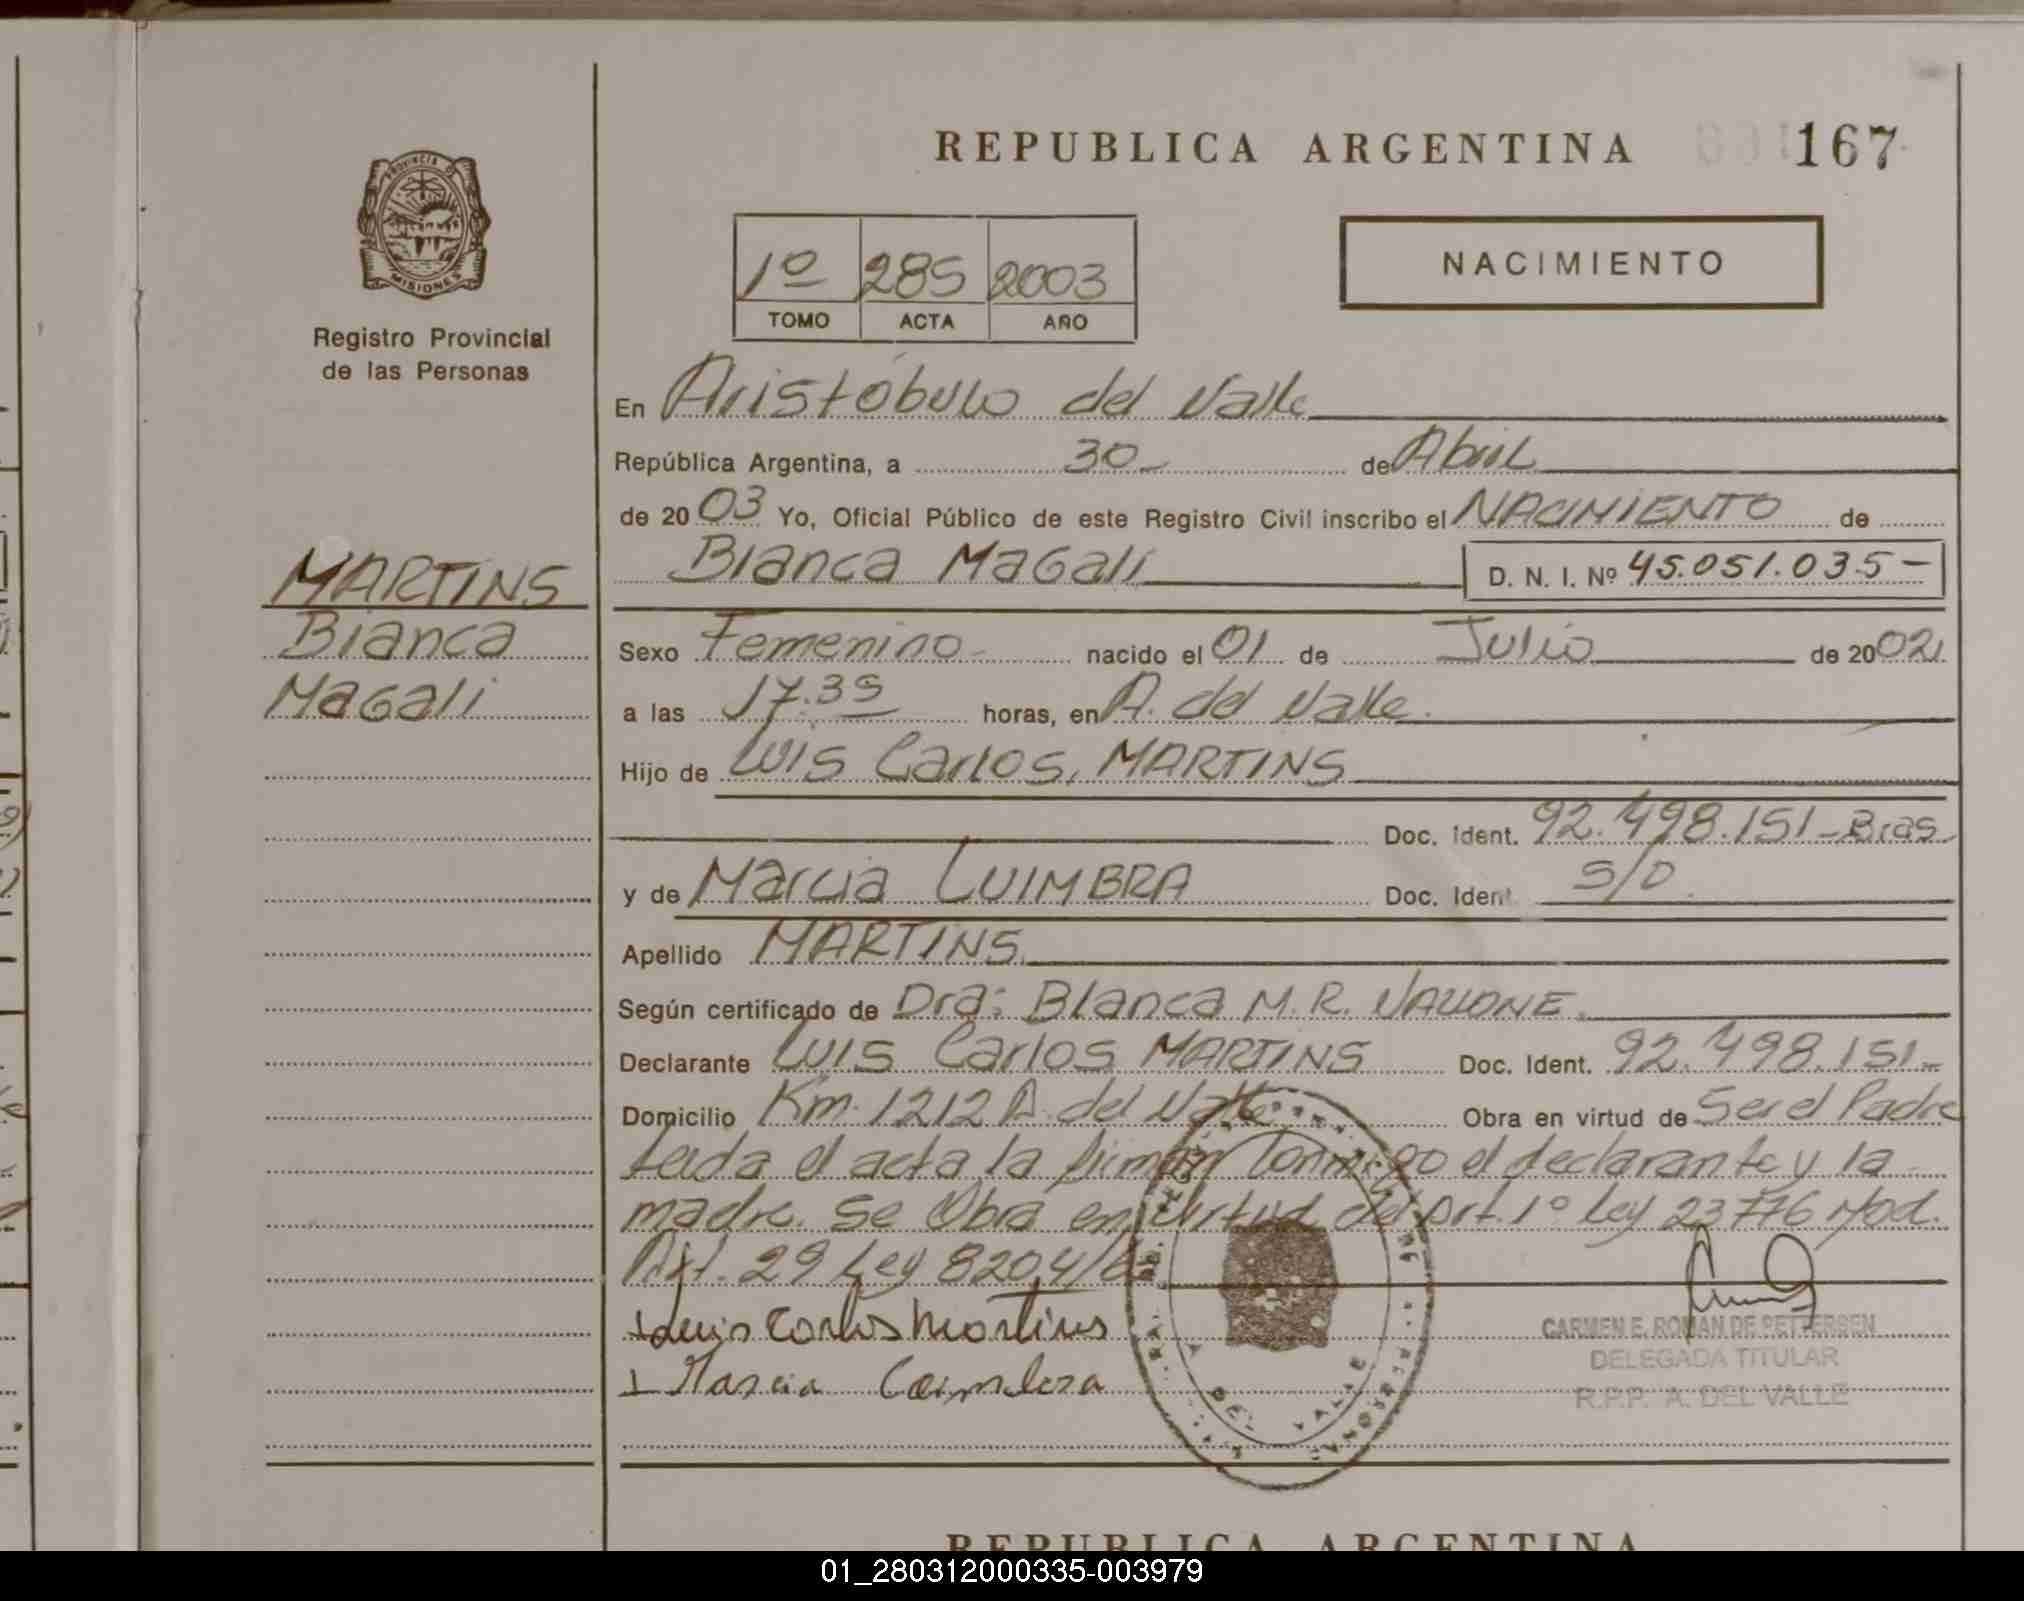 REPUBLICA ARGENTINA 167
PROVINCIA DE MISIONES
Registro Provincial
de las Personas
1º 285 2003
TOMO ACTA AÑO
NACIMIENTO
MARTINS
Bianca
Magali
En Aristóbulo del Valle
República Argentina, a 30 de Abril
de 2003 Yo, Oficial Público de este Registro Civil inscribo el NACIMIENTO de
Bianca Magali D. N. I. Nº 45.051.035-
Sexo Femenino nacido el 01 de Julio de 2002
a las 17.35 horas, en A. del Valle.
Hijo de Luis Carlos, MARTINS
Doc. Ident. 92.498.151-Bras
y de Marcia LUIMBRA Doc. Ident S/D.
Apellido MARTINS.
Según certificado de Dra: Blanca M. R. NAVONE.
Declarante Luis Carlos MARTINS Doc. Ident. 92.498.151-
Domicilio Km. 1212 A. del Valle Obra en virtud de Ser el Padre
Leida el acta la firman conmigo el declarante y la
madre. Se Obra en virtud del Art. 1º Ley 23776 Mod.
Art. 29 Ley 8204/6
Luis Carlos Martins
Marcia
CARMEN E. ROMAN DE PETTERSEN
DELEGADA TITULAR
R.P.P. A. DEL VALLE
A. DEL VALLE
REPUBLICA ARGENTINA
01_280312000335-003979